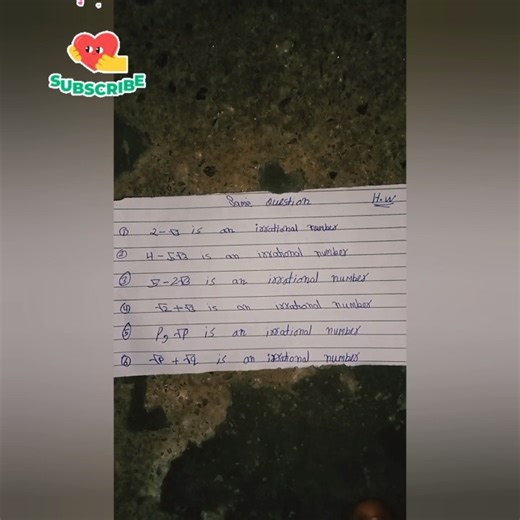 SUBSCRIBE
Same question H.W
① 2-√3 is an irrational number
② 4-5√2 is an irrational number
③ 5-2√3 is an irrational number
④ √2+√3 is an irrational number
⑤ P, √P is an irrational number
⑥ √P + √q is an irrational number